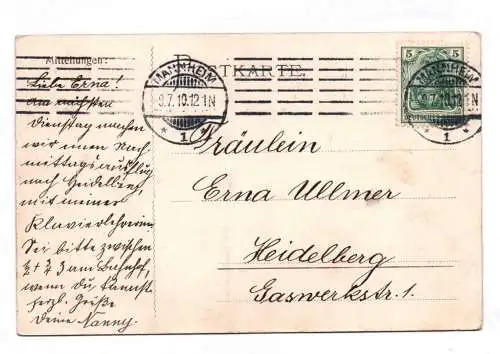 Mitteilungen:
POSTKARTE.
MANNHEIM
9.7.10.12-1N
* 1 *
5 5
DEUTSCHES
MANNHEIM
9.7.10.12-1N
* 1
Liebe Erna!
Am nächsten
Dienstag machen
wir einen Nach-
mittagsausflug
nach Heidelberg
mit meiner
Klavierlehrerin.
Sei bitte zwischen
3 am Bahnhof,
wenn du kannst.
herzl. Grüße
Deine Nanny.
Fräulein
Erna Ullmer
Heidelberg
Gaswerkstr. 1.